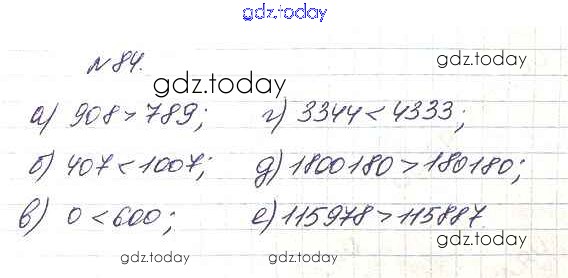 gdz.today
gdz.today
№ 84.
gdz.today
а) 908 > 789; г) 3344 < 4333;
gdz.today
б) 407 < 1007; д) 1800180 > 180180;
в) 0 < 600; е) 115978 > 115887.
gdz.today
gdz.today
gdz.today